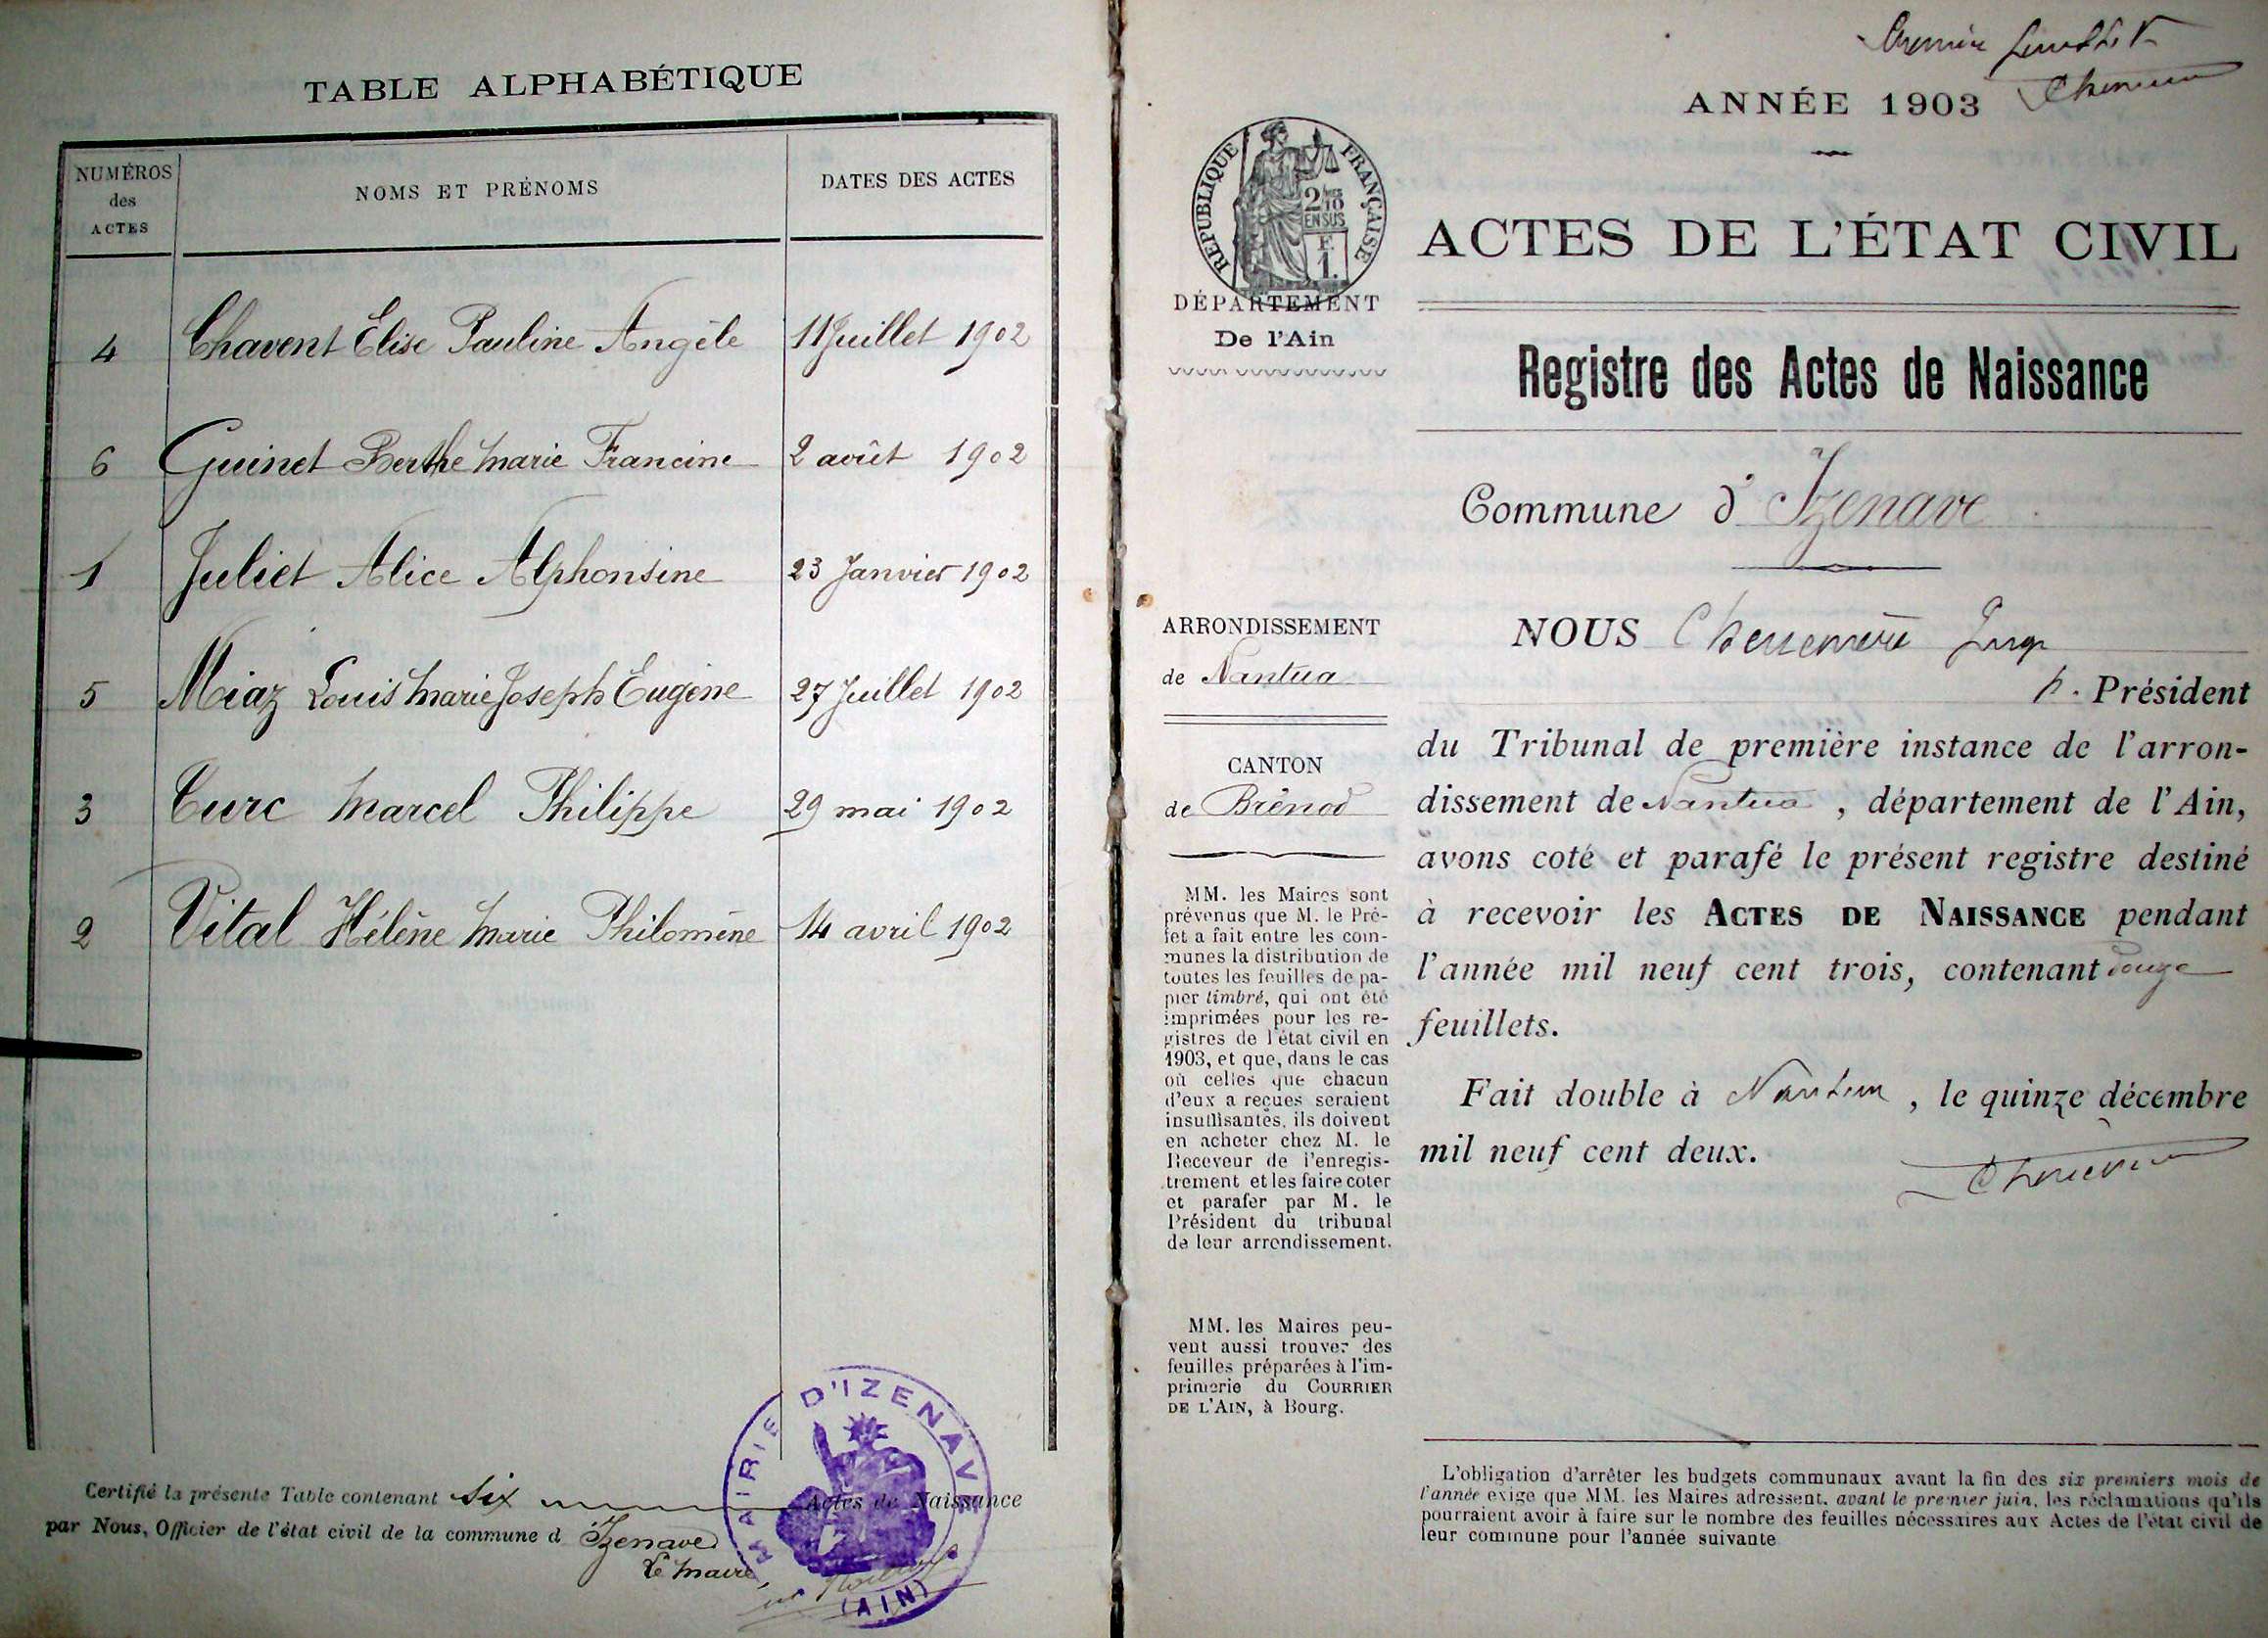 TABLE ALPHABÉTIQUE
NUMÉROS
des
ACTES
NOMS ET PRÉNOMS
DATES DES ACTES
4 Chavent Elise Pauline Angèle 11 Juillet 1902
6 Guinet Berthe Marie Francine 2 août 1902
1 Juliet Alice Alphonsine 23 Janvier 1902
5 Miaz Louis Marie Joseph Eugène 27 Juillet 1902
3 Turc Marcel Philippe 29 mai 1902
2 Vital Hélène Marie Philomène 14 avril 1902
Certifié la présente Table contenant six Actes de Naissance
par Nous, Officier de l'état civil de la commune d Izenave
Le Maire,
MAIRIE D'IZENAVE
(AIN)
ANNÉE 1903
RÉPUBLIQUE FRANÇAISE
2/10
EN SUS
F.
1.
ACTES DE L'ÉTAT CIVIL
DÉPARTEMENT
De l'Ain
Registre des Actes de Naissance
Commune d' Izenave
ARRONDISSEMENT
de Nantua
CANTON
de Brénod
MM. les Maires sont
prévenus que M. le Pré-
fet a fait entre les com-
munes la distribution de
toutes les feuilles de pa-
pier timbré, qui ont été
imprimées pour les re-
gistres de l'état civil en
1903, et que, dans le cas
où celles que chacun
d'eux a reçues seraient
insuffisantes, ils doivent
en acheter chez M. le
Receveur de l'enregis-
trement et les faire coter
et parafer par M. le
Président du tribunal
de leur arrondissement.
MM. les Maires peu-
vent aussi trouver des
feuilles préparées à l'im-
primerie du COURRIER
DE L'AIN, à Bourg.
NOUS
Président
du Tribunal de première instance de l'arron-
dissement de Nantua , département de l'Ain,
avons coté et parafé le présent registre destiné
à recevoir les ACTES DE NAISSANCE pendant
l'année mil neuf cent trois, contenant douze
feuillets.
Fait double à Nantua , le quinze décembre
mil neuf cent deux.
L'obligation d'arrêter les budgets communaux avant la fin des six premiers mois de
l'année exige que MM. les Maires adressent, avant le premier juin, les réclamations qu'ils
pourraient avoir à faire sur le nombre des feuilles nécessaires aux Actes de l'état civil de
leur commune pour l'année suivante